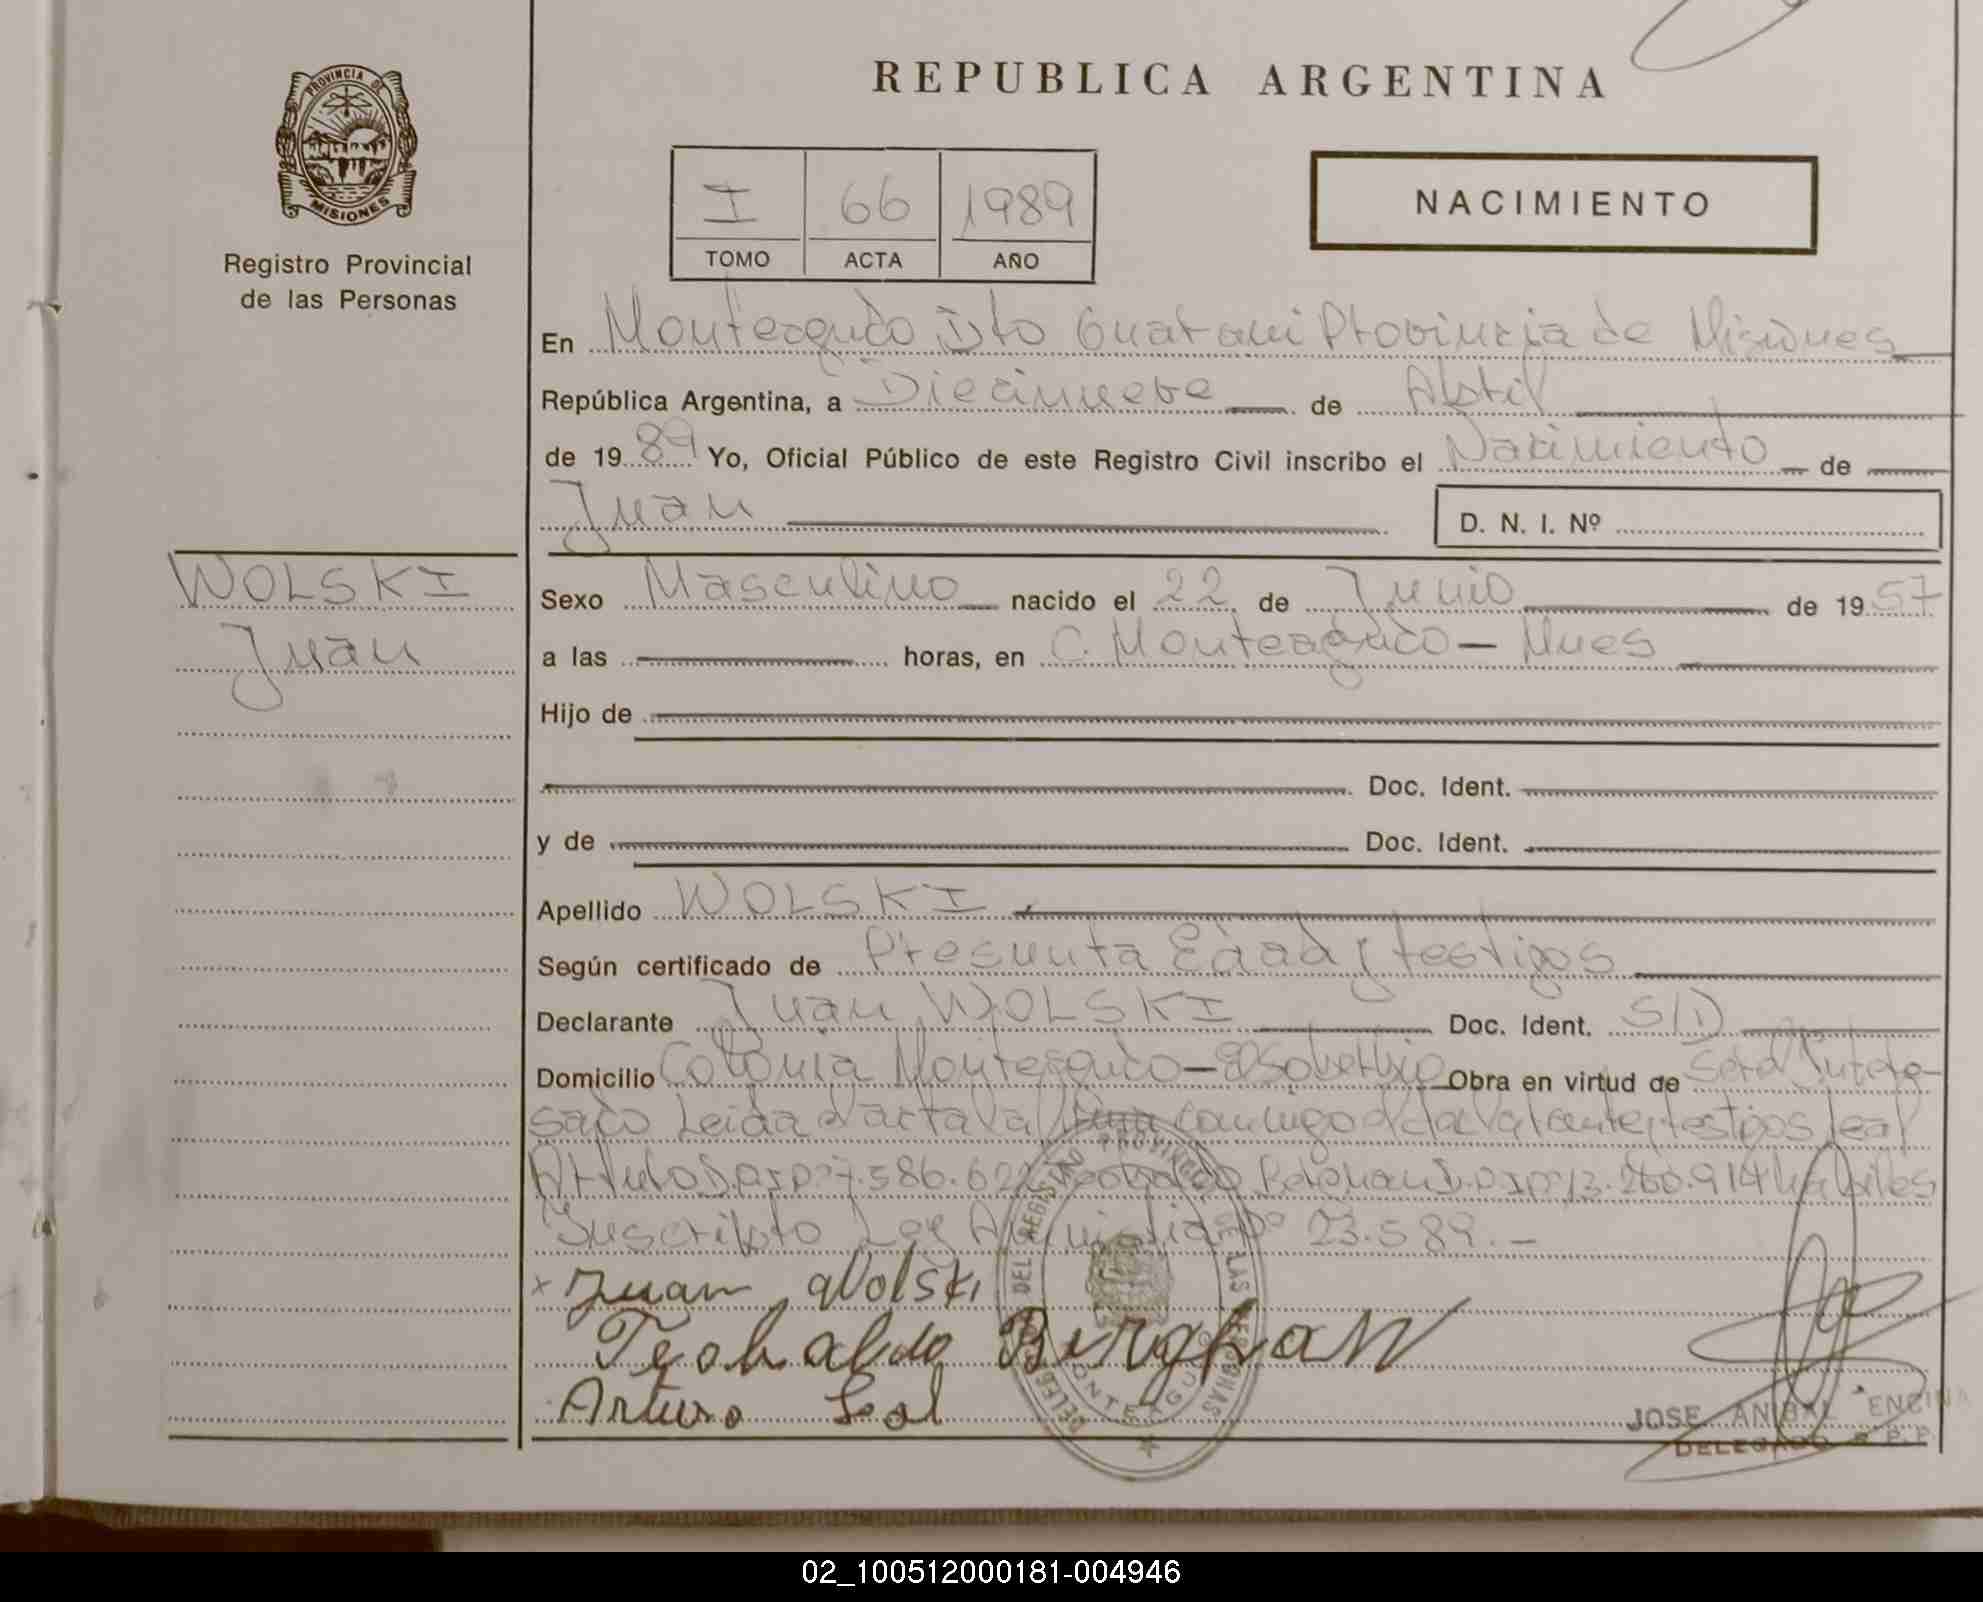 PROVINCIA DE
MISIONES
Registro Provincial
de las Personas
REPUBLICA ARGENTINA
I 66 1989
TOMO ACTA AÑO
NACIMIENTO
En Monteagudo Dto Guarani Provincia de Misiones
República Argentina, a Diecinueve de Abril
de 1989 Yo, Oficial Público de este Registro Civil inscribo el Nacimiento de
Juan D. N. I. Nº
WOLSKI
Juan
Sexo Masculino nacido el 22 de Junio de 1957
a las horas, en C. Monteagudo - Mnes
Hijo de
Doc. Ident.
y de Doc. Ident.
Apellido WOLSKI
Según certificado de Presunta Edad y testigos
Declarante Juan WOLSKI Doc. Ident. S/D
Domicilio Colonia Monteagudo - Obra en virtud de Ser el Intere-
sado Leida el acta la conmigo el declarante y testigos Leal
Arturo D.N.I Nº 7.586.622 Teobaldo D.N.I Nº 13.260.914 habiles
Inscripto Ley Amnistia Nº 23.589.-
x Juan Wolski
Teobaldo
Arturo Leal
DEL REGISTRO PROVINCIAL
LAS PERSONAS
MONTEAGUDO
JOSE ANIBAL ENCINA
DELEGADO R.P.P.
02_100512000181-004946